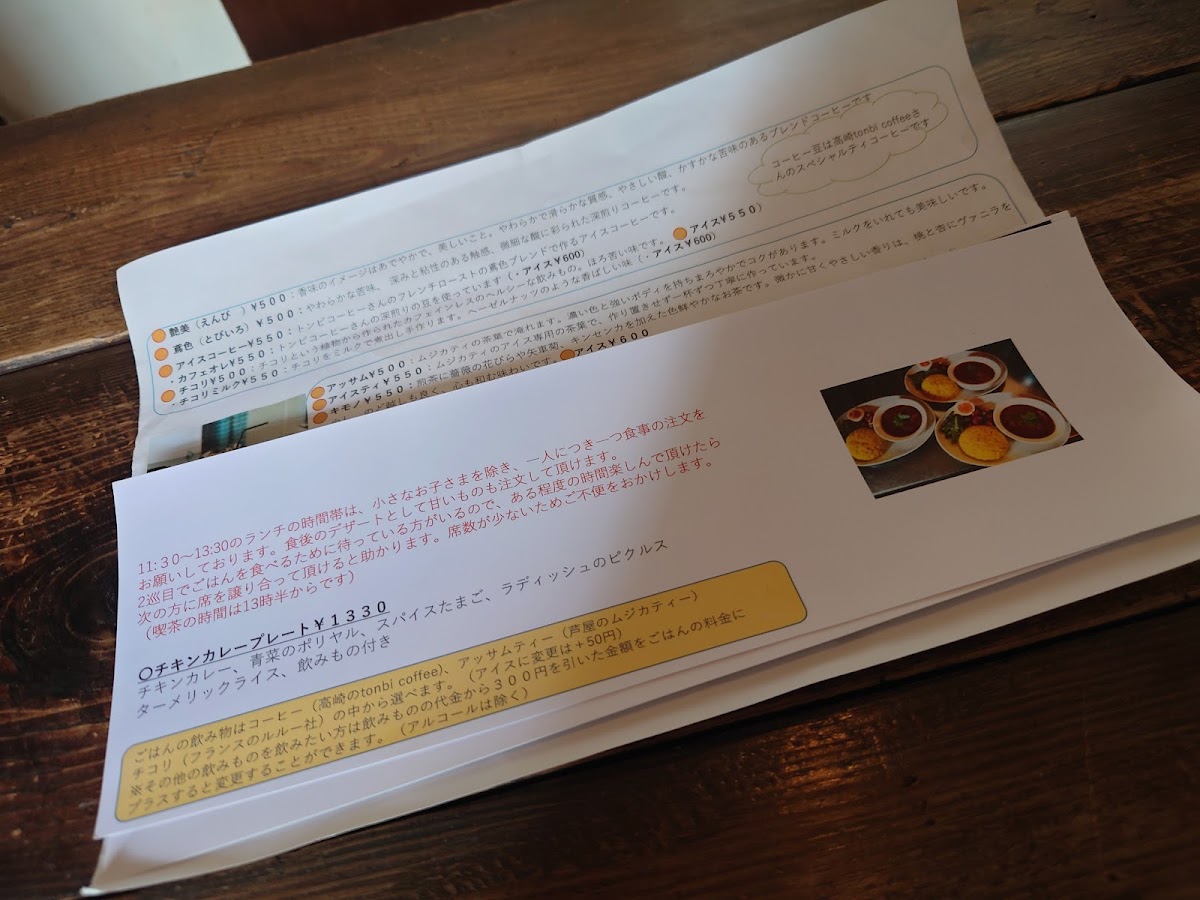 艶美（えんび　）￥５００：香味のイメージはあでやかで、美しいこと。やわらかで滑らかな質感、やさしい酸、かすかな苦味のあるブレンドコーヒーです
鳶色（とびいろ）￥５００：やわらかな苦味、深みと粘性のある触感、微細な酸に彩られた深煎りコーヒーです。
アイスコーヒー￥５５０：トンビコーヒーさんのフレンチローストの鳶色ブレンドで作るアイスコーヒーです。
・カフェオレ￥５５０：トンビコーヒーさんの深煎りの豆を使っています（・アイス￥600）
チコリ￥５００：チコリという植物から作られたカフェインレスのヘルシーな飲みもの。ほろ苦い味です。 アイス￥５５０）
・チコリミルク￥５５０：チコリをミルクで煮出し手作ります。ヘーゼルナッツのような香ばしい味（・アイス￥600）
コーヒー豆は高崎tonbi coffeeさ
んのスペシャルティコーヒーです
アッサム￥５００：ムジカティの茶葉で淹れます。濃い色と強いボディを持ちまろやかでコクがあります。ミルクをいれても美味しいです。
アイスティ￥５５０：ムジカティのアイス専用の茶葉で、作り置きせず一杯ずつ丁寧に作っています。
キモノ￥５５０：煎茶に薔薇の花びらや矢車菊、キンセンカを加えた色鮮やかなお茶です。微かに甘くやさしい香りは、桃と杏にヴァニラを
のど越しも良く、心も和む味わいです。 アイス￥６００
11:３０～13:30のランチの時間帯は、小さなお子さまを除き、一人につき一つ食事の注文を
お願いしております。食後のデザートとして甘いものも注文して頂けます。
2巡目でごはんを食べるために待っている方がいるので、ある程度の時間楽しんで頂けたら
次の方に席を譲り合って頂けると助かります。席数が少ないためご不便をおかけします。
（喫茶の時間は13時半からです）
〇チキンカレープレート￥１３３０
チキンカレー、青菜のポリヤル、スパイスたまご、ラディッシュのピクルス
ターメリックライス、飲みもの付き
ごはんの飲み物はコーヒー（高崎のtonbi coffee）、アッサムティー（芦屋のムジカティー）
チコリ（フランスのルルー社）の中から選べます。（アイスに変更は＋50円）
※その他の飲みものを飲みたい方は飲みものの代金から３００円を引いた金額をごはんの料金に
プラスすると変更することができます。（アルコールは除く）